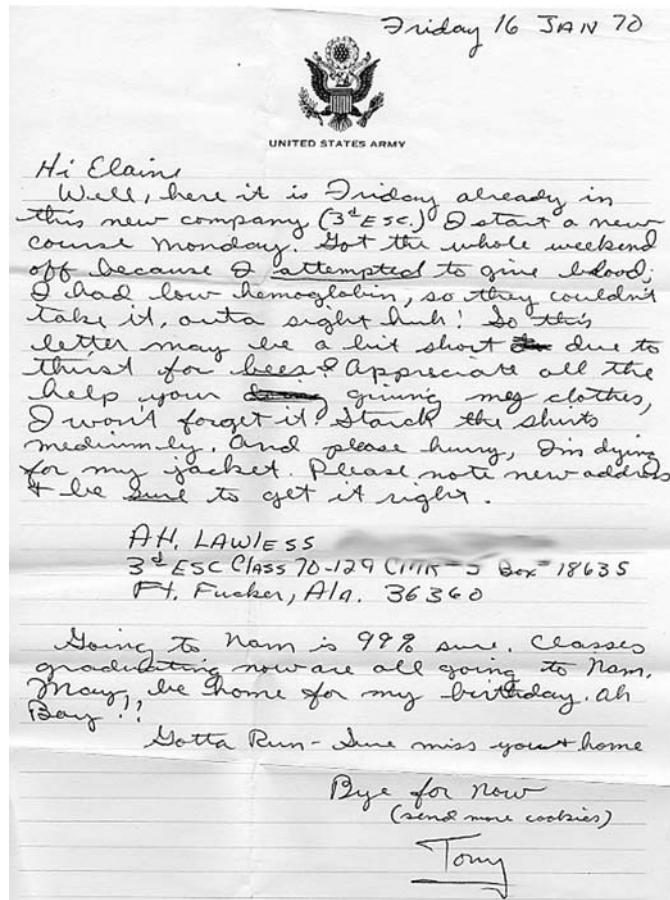 Friday 16 JAN 70
UNITED STATES ARMY
Hi Elaine
Well, here it is Friday already in
this new company (3d ESC.) I start a new
course Monday. Got the whole weekend
off because I attempted to give blood;
I had low hemoglobin, so they couldn't
take it, outa sight huh! So this
letter may be a bit short due to
thirst for bees! Appreciate all the
help your giving me clothes,
I won't forget it! Starch the shirts
mediumly. And please hurry, I'm dying
for my jacket. Please note new address
+ be sure to get it right.
AH. LAWLESS
3d ESC Class 70-129 CMR-5 Box 18635
Ft. Fucker, Ala. 36360
Going to Nam is 99% sure. Classes
graduating now are all going to Nam.
May be home for my birthday. Ah
Boy!!
Gotta Run - Sure miss you + home
Bye for now
(send more cookies)
Tony